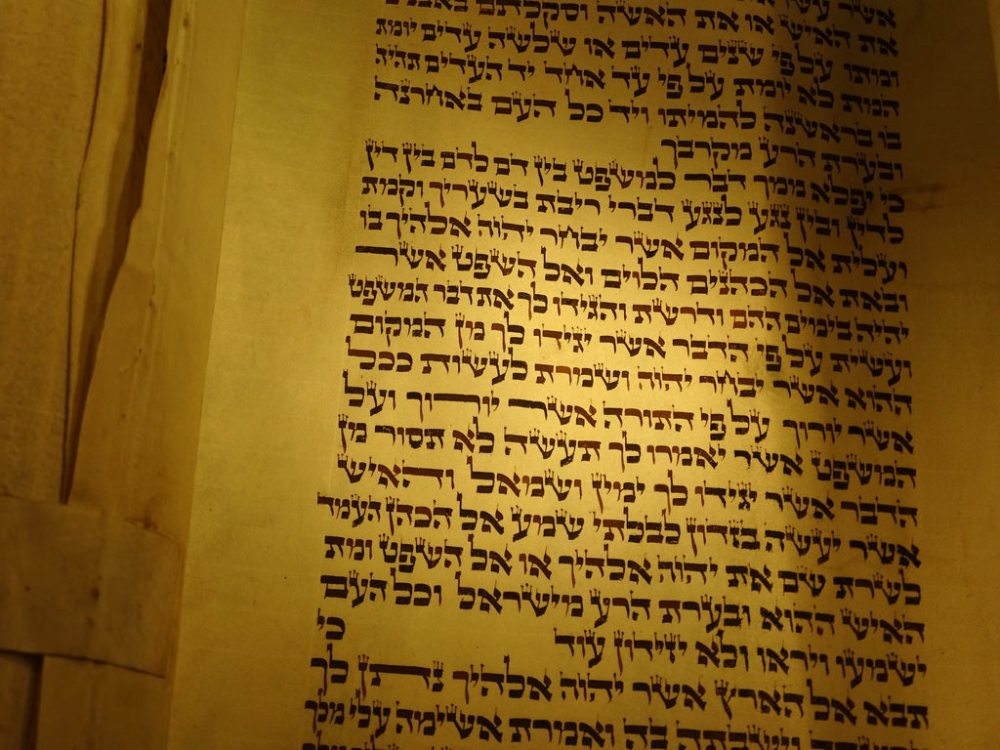 אשר עשו
את האיש או את האשה וסקלתם באבנים
ומתו על פי שנים עדים או שלשה עדים יומת
המת לא יומת על פי עד אחד יד העדים תהיה
בו בראשנה להמיתו ויד כל העם באחרנה
ובערת הרע מקרבך
כי יפלא ממך דבר למשפט בין דם לדם בין דין
לדין ובין נגע לנגע דברי ריבת בשעריך וקמת
ועלית אל המקום אשר יבחר יהוה אלהיך בו
ובאת אל הכהנים הלוים ואל השפט אשר
יהיה בימים ההם ודרשת והגידו לך את דבר המשפט
ועשית על פי הדבר אשר יגידו לך מן המקום
ההוא אשר יבחר יהוה ושמרת לעשות ככל
אשר יורוך על פי התורה אשר יורוך ועל
המשפט אשר יאמרו לך תעשה לא תסור מן
הדבר אשר יגידו לך ימין ושמאל והאיש
אשר יעשה בזדון לבלתי שמע אל הכהן העמד
לשרת שם את יהוה אלהיך או אל השפט ומת
האיש ההוא ובערת הרע מישראל וכל העם
ישמעו ויראו ולא יזידון עוד כי
תבא אל הארץ אשר יהוה אלהיך נתן לך
וישבתה בה ואמרת אשימה עלי מלך